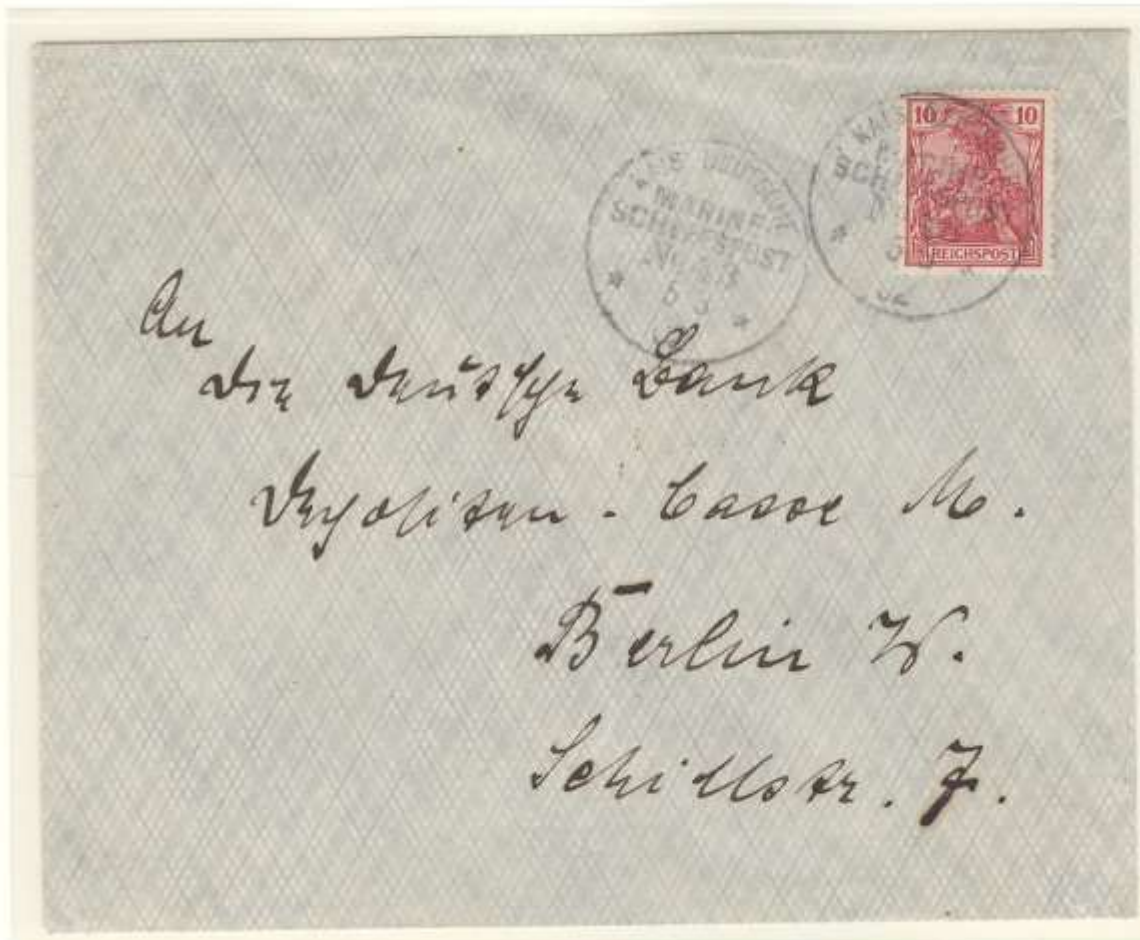 10 10
REICHSPOST
MARINE-
SCHIFFSPOST
An
die Deutsche Bank
Depositen-Casse M.
Berlin W.
Schillstr. 7.